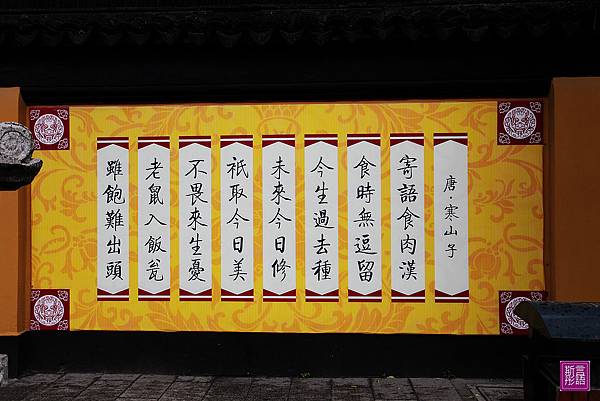 唐·寒山子
寄語食肉漢
食時無逗留
今生過去種
未來今日修
祇取今日美
不畏來生憂
老鼠入飯瓮
雖飽難出頭
言語
斯彤